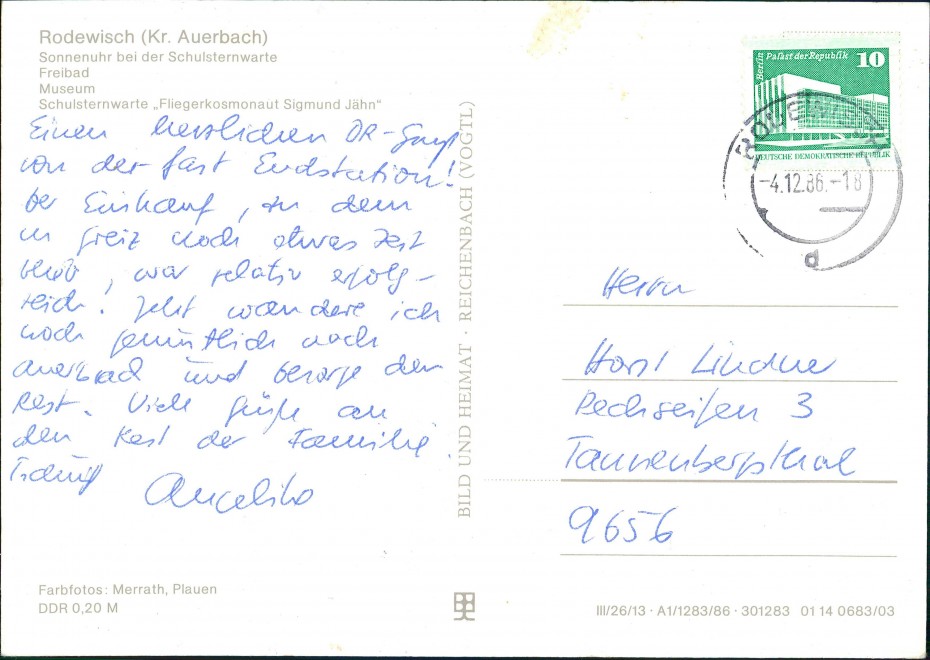 Rodewisch (Kr. Auerbach)
Sonnenuhr bei der Schulsternwarte
Freibad
Museum
Schulsternwarte „Fliegerkosmonaut Sigmund Jähn“
Einen herzlichen DR-Gruß
von der fast Endstation!
Der Einkauf, zu dem
in Greiz noch etwas Zeit
blieb, war relativ erfolg-
reich. Jetzt wandere ich
noch gemütlich nach
Auerbach und besorge den
Rest. Viele Grüße an
den Rest der Familie.
Tschüß
Angelika
BILD UND HEIMAT · REICHENBACH (VOGTL)
Berlin Palast der Republik 10
DEUTSCHE DEMOKRATISCHE REPUBLIK
RODEWISCH
-4.12.86.-18
d
Herrn
Horst Lindner
Pechseifen 3
Tannenbergsthal
9656
Farbfotos: Merrath, Plauen
DDR 0,20 M
III/26/13 · A1/1283/86 · 301283 01 14 0683/03